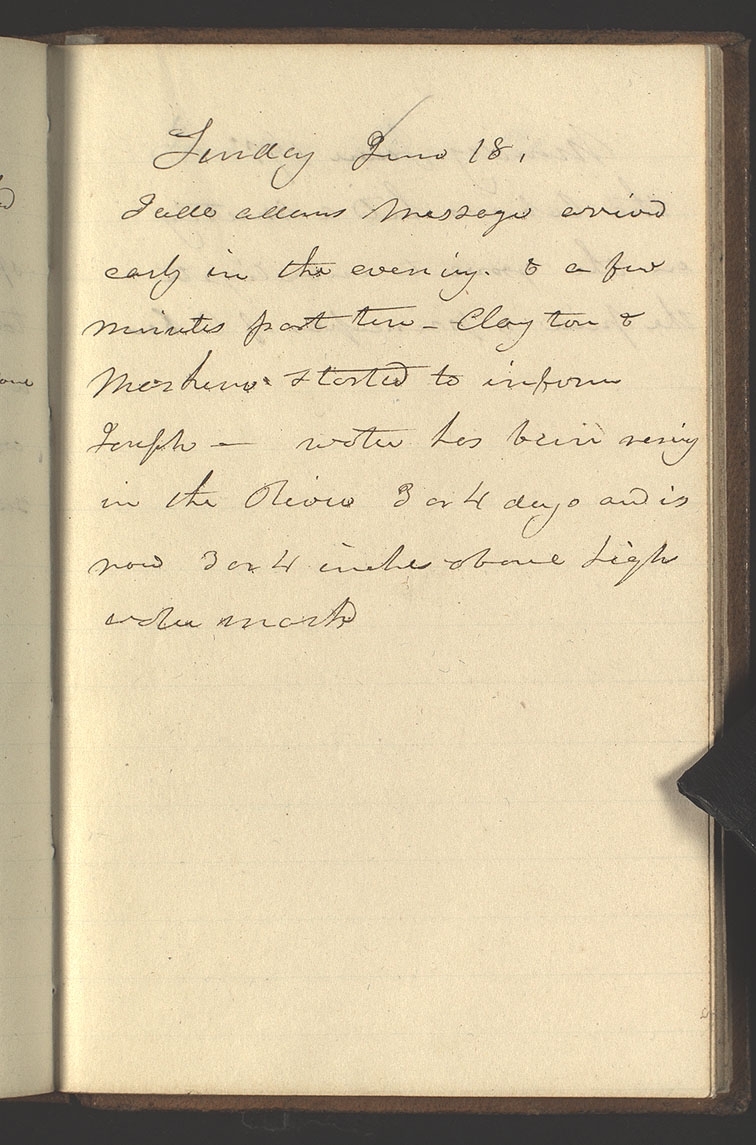 Sunday June 18.
Judge adams Message arrived
early in the evening. & a few
minutes past ten – Clayton &
Markham started to inform
Joseph – water has been rising
in the River 3 or 4 days and is
now 3 or 4 inches above high
water mark